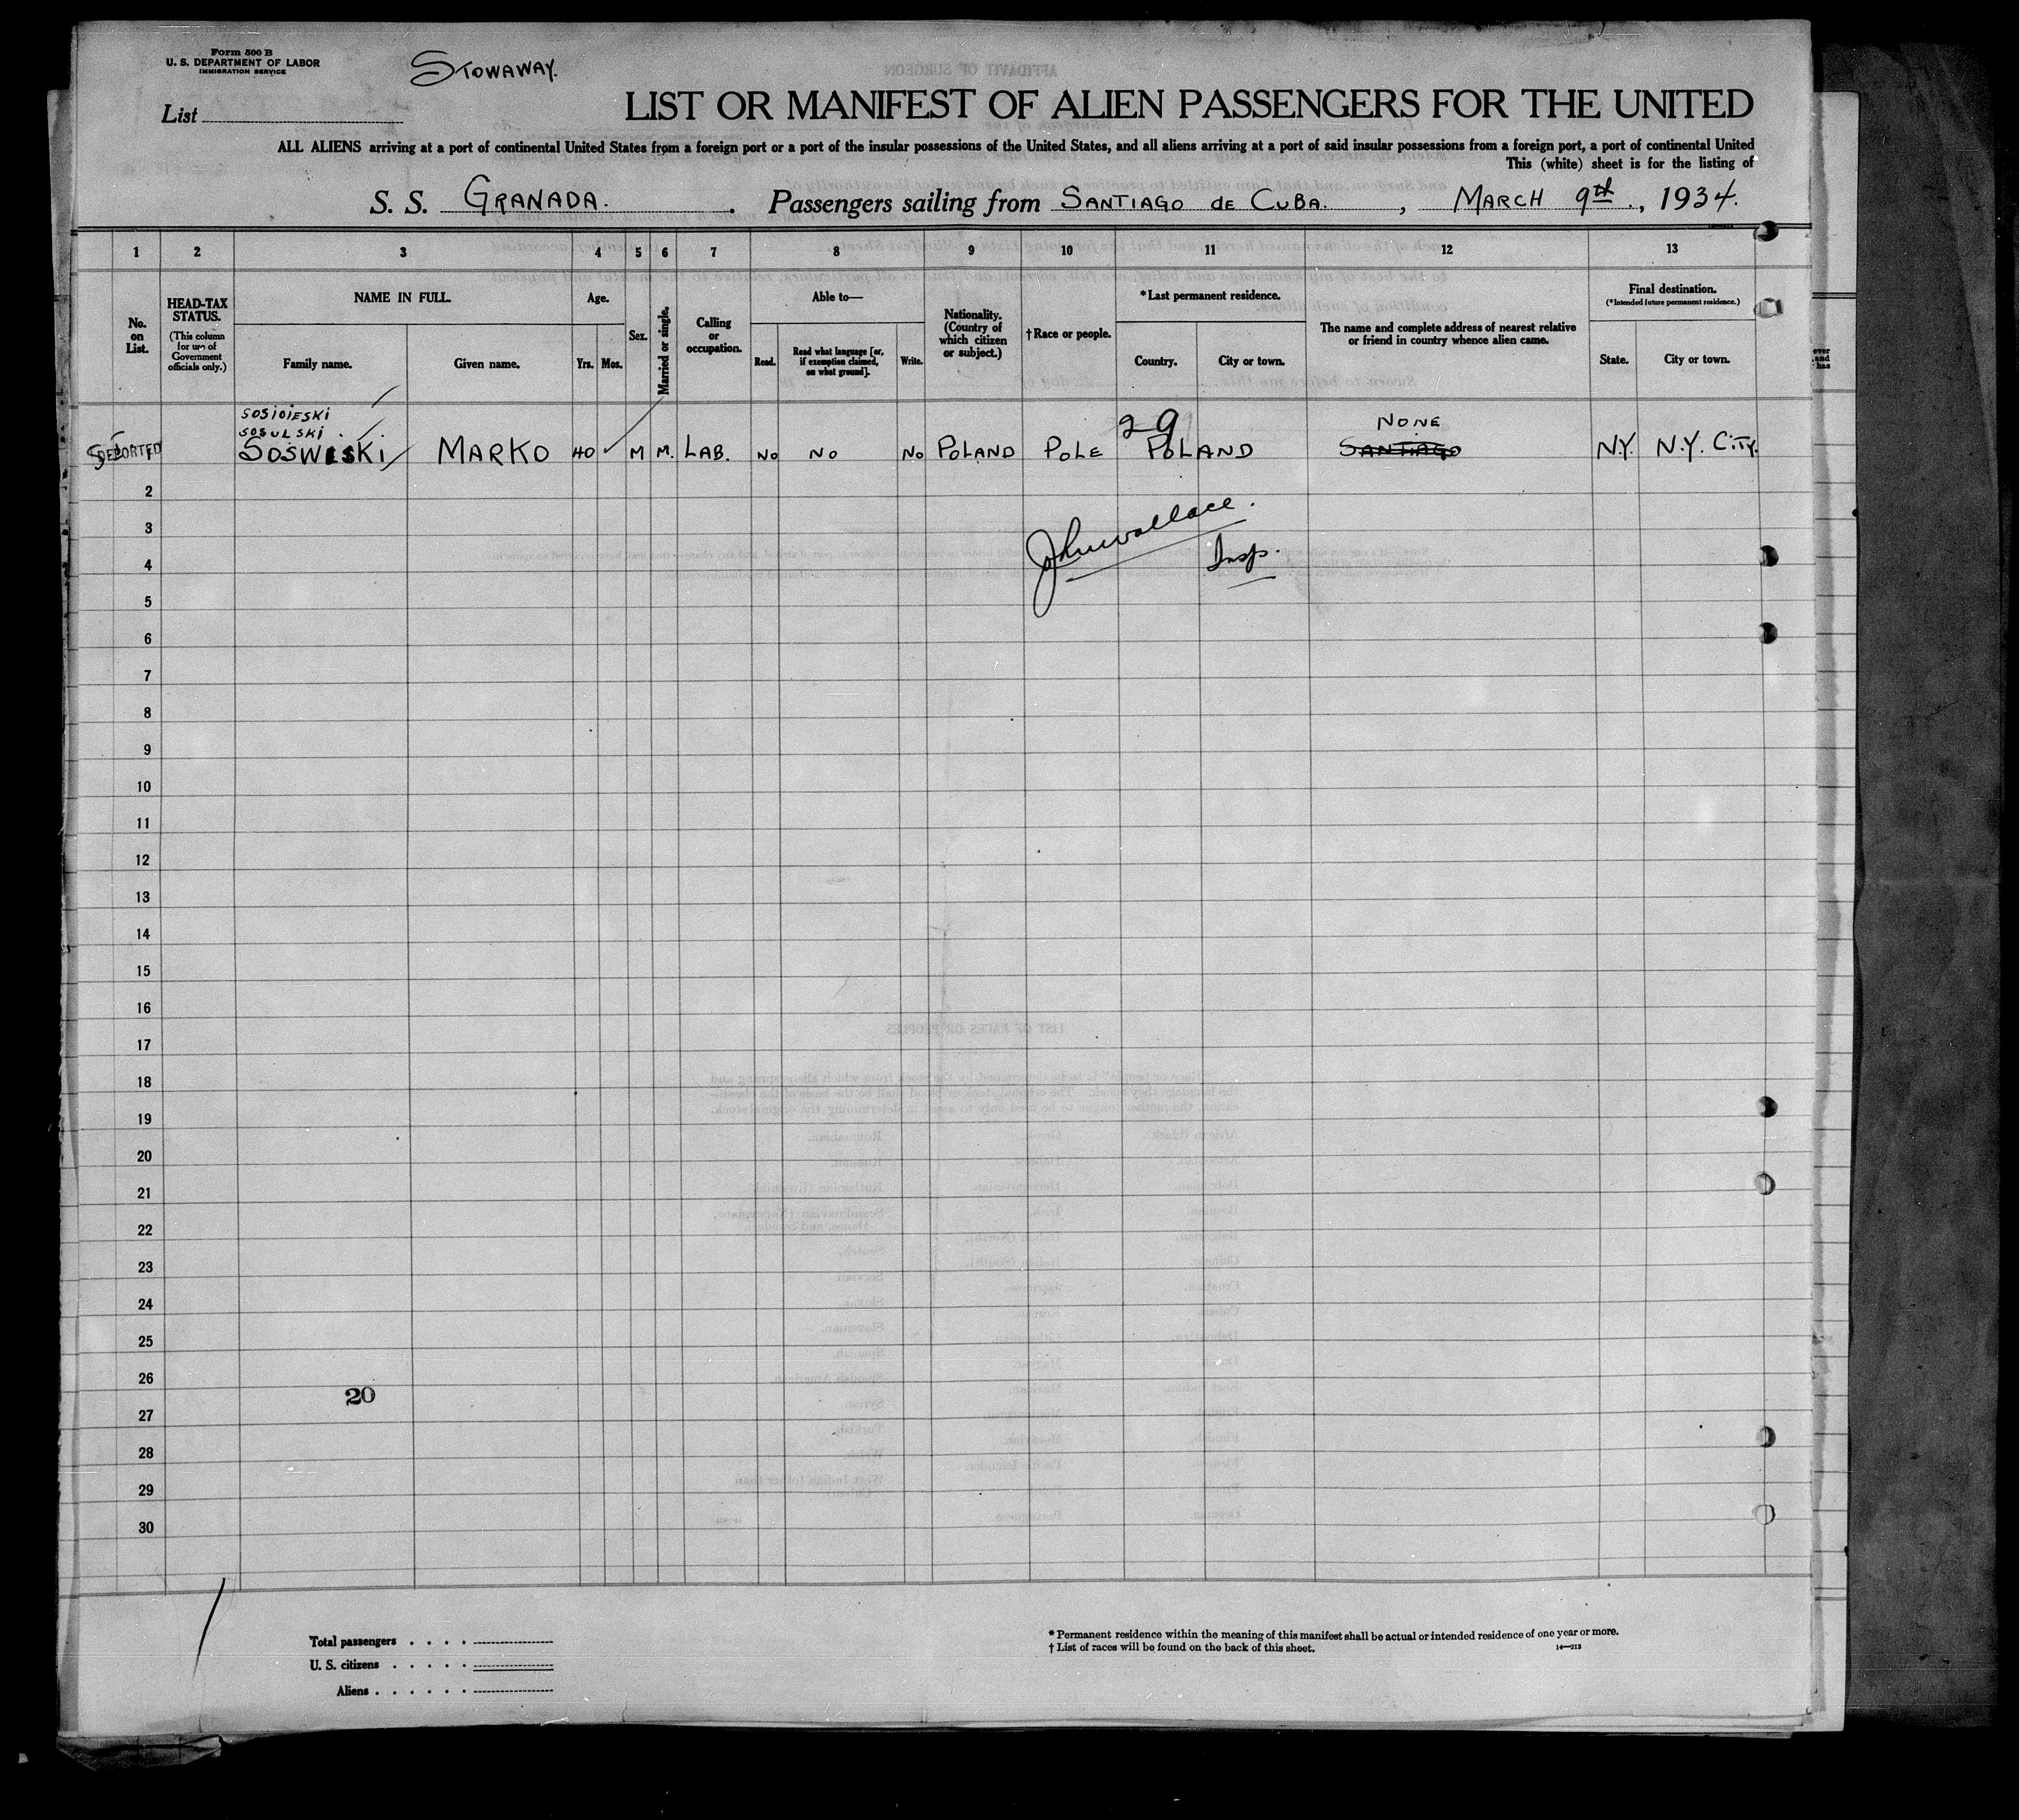 Form 500 B
U. S. DEPARTMENT OF LABOR
IMMIGRATION SERVICE
STOWAWAY.
List
LIST OR MANIFEST OF ALIEN PASSENGERS FOR THE UNITED
ALL ALIENS arriving at a port of continental United States from a foreign port or a port of the insular possessions of the United States, and all aliens arriving at a port of said insular possessions from a foreign port, a port of continental United
This (white) sheet is for the listing of
S. S. GRANADA. Passengers sailing from SANTIAGO de CUBA. , MARCH 9th, 1934.
1 2 3 4 5 6 7 8 9 10 11 12 13
No. on List.
HEAD-TAX STATUS.
(This column for use of Government officials only.)
NAME IN FULL.
Family name.
Given name.
Age.
Yrs.
Mos.
Sex.
Married or single.
Calling or occupation.
Able to—
Read.
Read what language [or, if exemption claimed, on what ground].
Write.
Nationality. (Country of which citizen or subject.)
†Race or people.
*Last permanent residence.
Country.
City or town.
The name and complete address of nearest relative or friend in country whence alien came.
Final destination.
(*Intended future permanent residence.)
State.
City or town.
ever
and
has
SOSIOIESKI
SOSULSKI
29
NONE
DEPORTED 1 SOSWISKI MARKO 40 M M. LAB. No No No POLAND POLE POLAND SANTIAGO N.Y. N.Y. CITY.
2
3
John Wallace.
Insp.
4
5
6
7
8
9
10
11
12
13
14
15
16
17
18
19
20
21
22
23
24
25
26
20
27
28
29
30
Total passengers
U. S. citizens
Aliens
* Permanent residence within the meaning of this manifest shall be actual or intended residence of one year or more.
† List of races will be found on the back of this sheet.
14—213